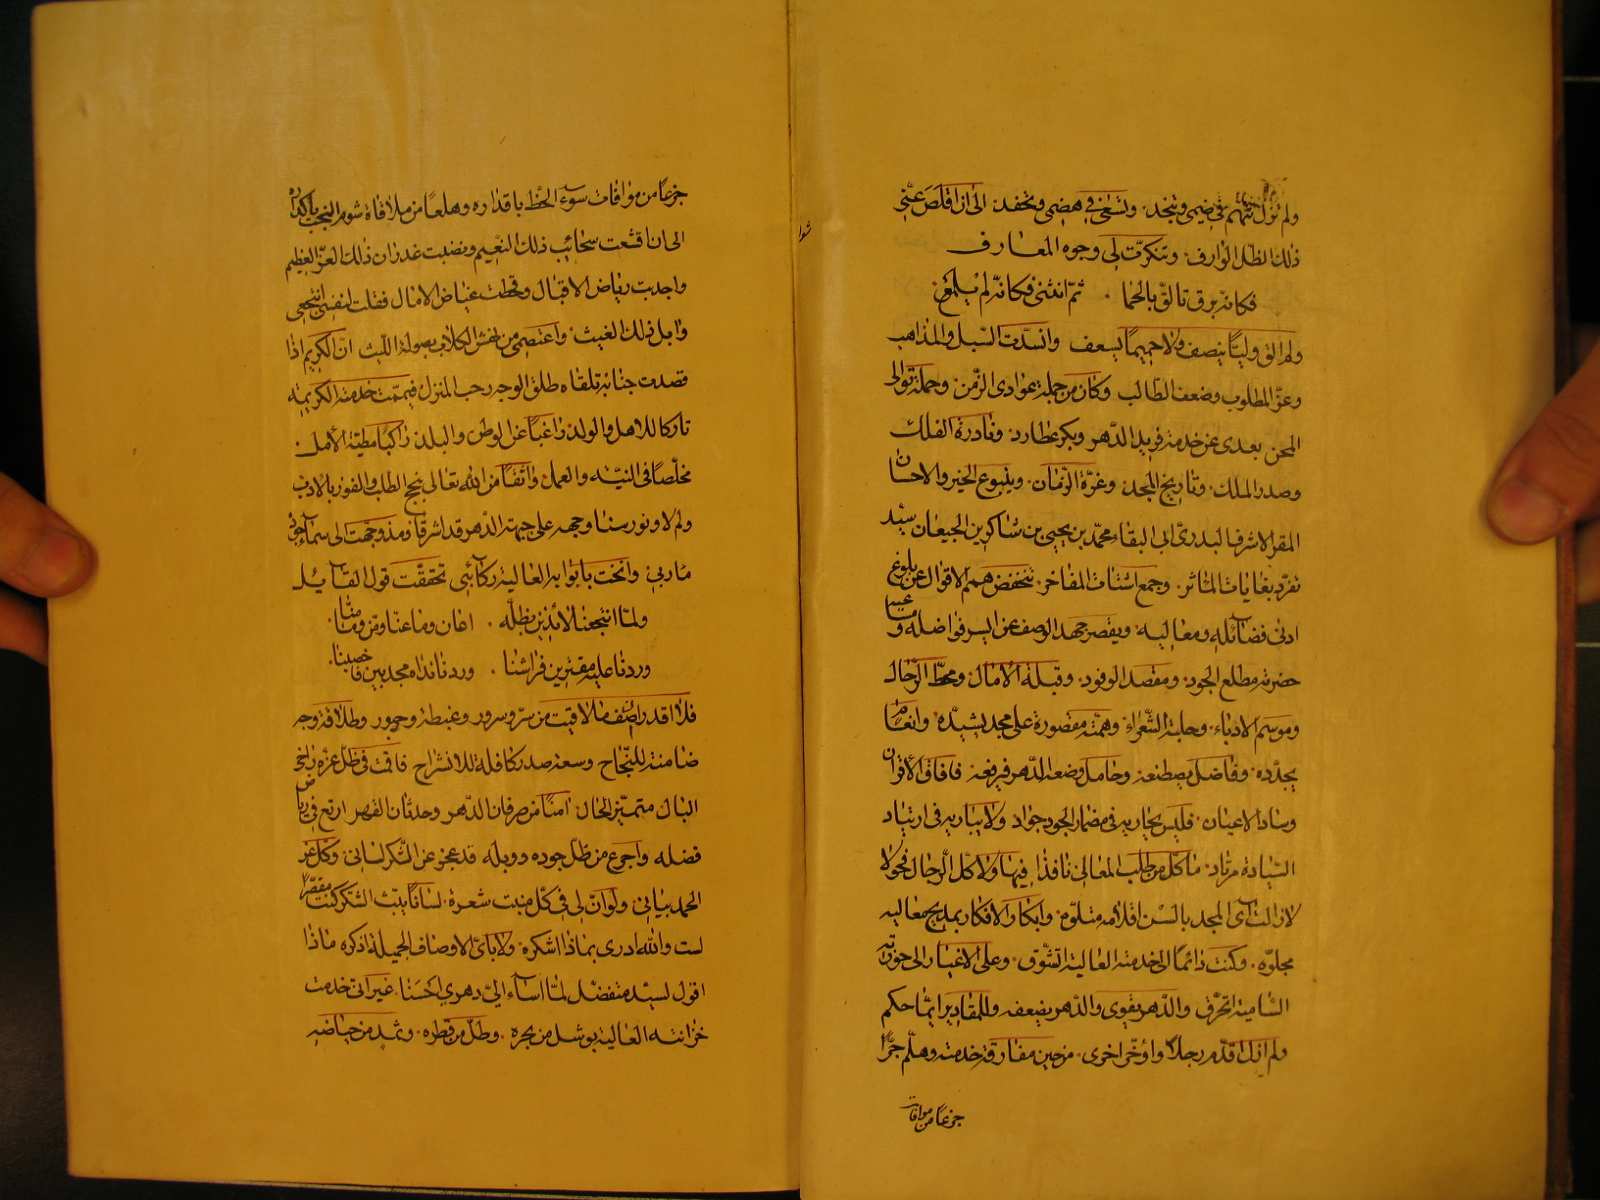 ولم تزل تتهم في ضيمي وتنجد وتسعى في هضمي وتحفد الى ان اقلص عني
ذلك الظل الوارف وتنكرت لي وجوه المعارف
فكانه برق تالق بالحما ثم انثنى فكانه لم يلمع
ولم الق وليا ينصف ولا حميما يسعف وانسدت السبل والمذاهب
وعز المطلوب وضعف الطالب وكان من جملة عوادى الزمن وحملة توالى
المحن بعدى عن خدمة فريد الدهر وبكر عطارد ونادرة الفلك
وصدر الملك وتاريخ المجد وغرة الزمان وينبوع الخير والاحسان
المقر الاشرف البدرى ابى البقا محمد بن يحيى بن شاكر بن الجيعان سيد
تفرد بغايات المآثر وجمع اشتات المفاخر تنخفض همم الاقوال عن بلوغ
ادنى فضائله ومعاليه ويقصر جهد الوصف عن ايسر فواضله و
حضرته مطلع الجود ومقصد الوفود وقبلة الآمال ومحط الرحال
وموسم الادباء وحلبة الشعراء وهمته مقصورة على مجد يشيده وانعام
يجدده وفاضل يصطنعه وخامل وضعه الدهر فيرفعه فافاق الأقران
وساد الاعيان فليس يجاريه في مضمار الجود جواد ولا يباريه في ارتياد
السيادة مرتاد ما كل من طلب المعالى نافذا فيها ولا كل الرجال فحولا
لا زالت آى المجد بالسن اقلامه متلوه وابكار الافكار بمديح معاليه
مجلوه وكنت دائما الى خدمته العالية اتشوق وعلى الاغبار الى حوزته
السامية اتحرق والدهر يقوى والدهر يضعفه وللمقادير ايثما حكم
ولم ازل اقدم رجلا واؤخر اخرى من حين مفارقة خدمته وهلم جرا
جزعا من موافات
جزعا من موافات سوء الحظ باقداره وهلعا من ملاقاة شوم البخت باكداره
الى ان اقشعت سحائب ذلك النعيم ونضبت غدران ذلك العز العظيم
واجدبت رياض الاقبال وقحطت غياض الامال فقلت لنفسى انتجعى
وابل ذلك الغيث واعتصمى من نهش الكلاب بصولة الليث ان الكريم اذا
قصدت جنابه تلقاه طلق الوجه رحب المنزل فيممت خدمته الكريمة
تاركا للاهل والولد راغبا عن الوطن والبلد راكبا مطية الأمل
مخلصا في النية والعمل واثقا من الله تعالى بنجح الطلب والفوز بالارب
ولم لا ونور سنا وجهه على جبهة الدهر قد اشرقا ومذ وجهت الى سماء جوه
مآربي وانخت بابوابه العالية ركائبي تحققت قول القائل
ولما انتجعنا لائذين بظله اعان وما عنا ومن وما منا
وردنا عليه مقترين فراشنا وردنا نداه مجدبين فاخصبنا
فلا اقدر اصف ما لاقيت من سر وسرور وغبطة وحبور وطلاقة وجه
ضامنة للنجاح وسعة صدر كافلة للانشراح فاقمت في ظل عزه رابح
البال متميز الحال آمنا من صرفان الدهر وحدثان القهر ارتع في رياض
فضله واجرع من طل جوده ووبله قد عجز عن الشكر لسانى وكل عن
الحمد بيانى ولو ان لى في كل منبت شعرة لسانا يبث الشكر كنت مقصرا
لست والله ادرى بماذا اشكره ولا باى الاوصاف الجميلة اذكره ماذا
اقول لسيد متفضل لما اساء الى دهري احسنا غير اننى خدمت
خزانته العالية بوشل من بحره وطل من قطره وثمد من حياضه